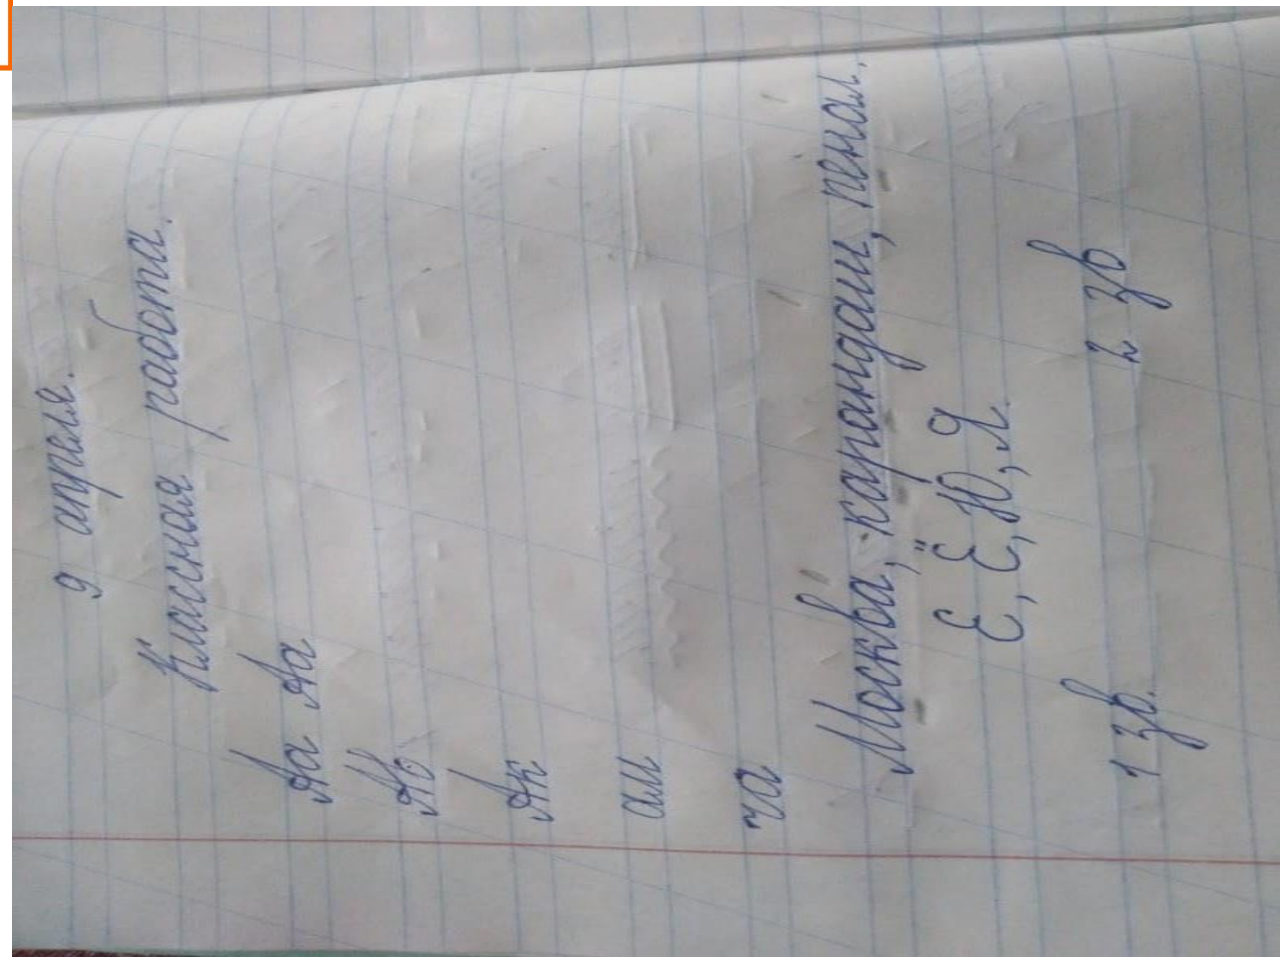 9 апреля.
Классная работа.
Аа Аа
Ав
Ак
ам
ча
Москва, карандаш, пенал,
Е, Ё, Ю, Я.
1 зв. 2 зв